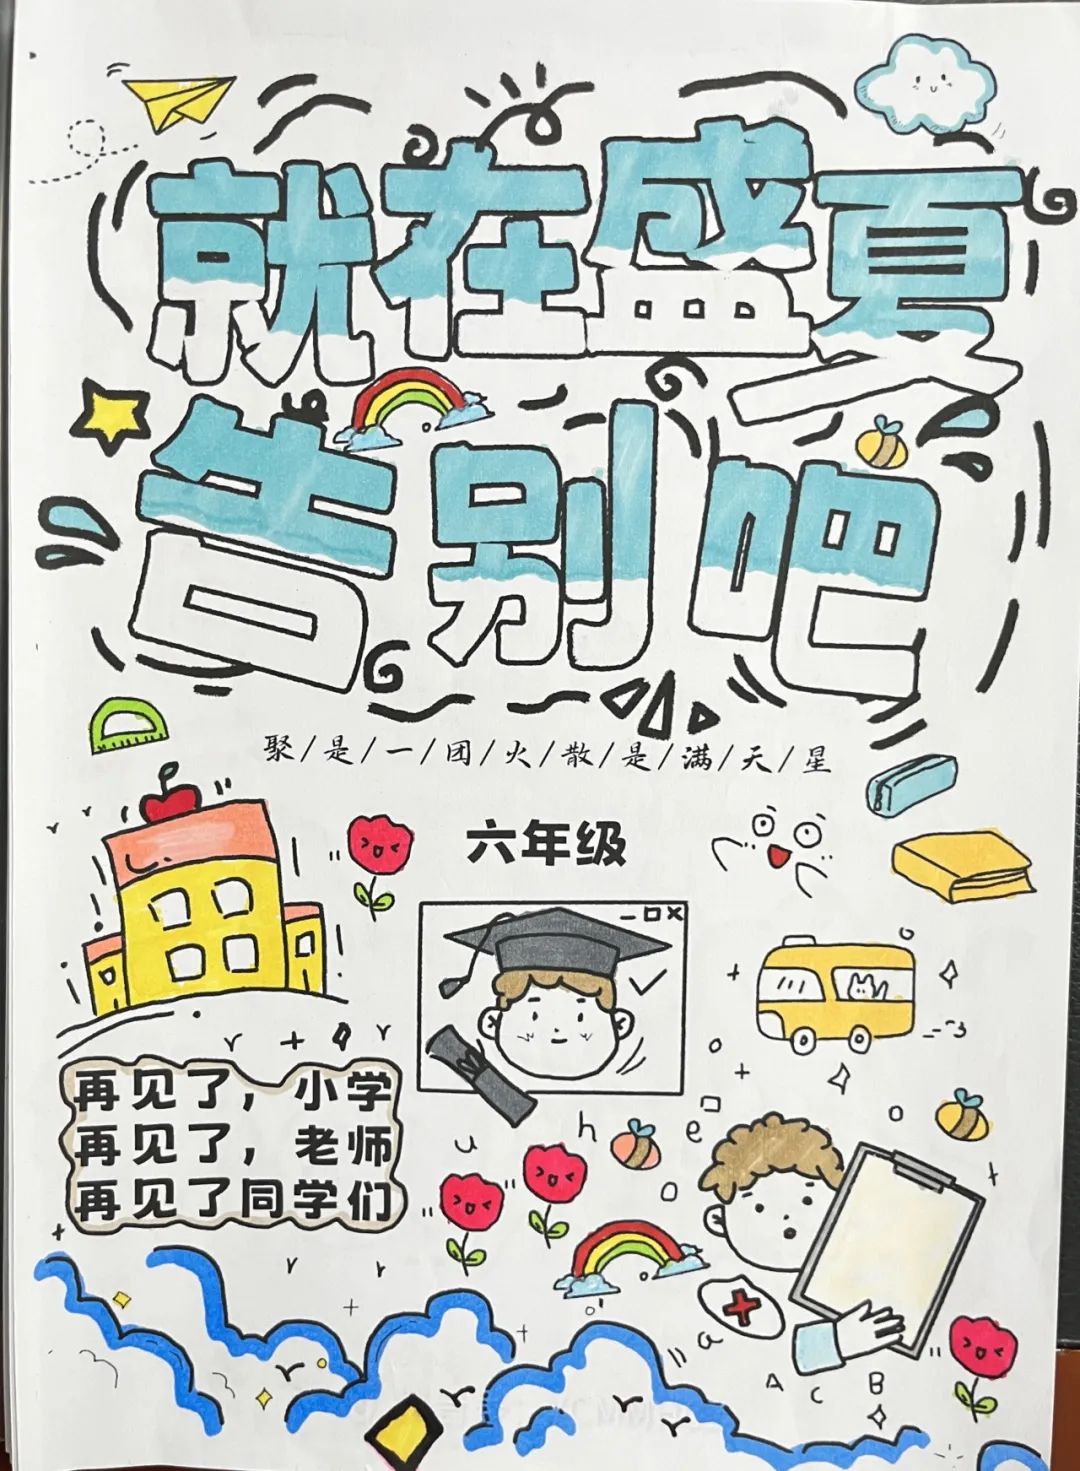 就在盛夏
告别吧
聚/是/一/团/火/散/是/满/天/星
六年级
再见了，小学
再见了，老师
再见了同学们
u
h
e
a
A
C
B